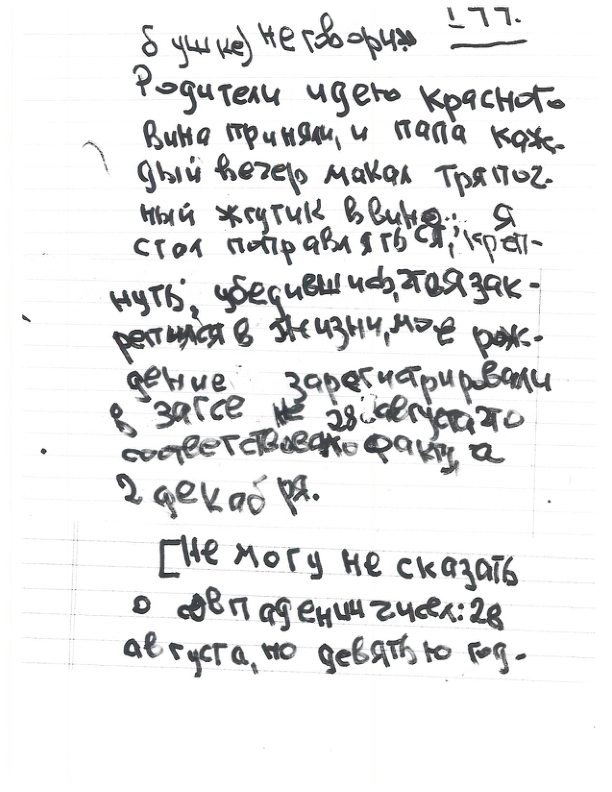 177.
бушке) не говорил
Родители идею красного
вина приняли, и папа каж-
дый вечер макал тряпоч-
ный жгутик в вино... Я
стал поправляться, креп-
нуть; убедившись, что я зак-
репился в жизни, мое рож-
дение зарегистрировали
в загсе не 28 августа что
соответствовало факту, а
2 декабря.
[Не могу не сказать
о совпадении чисел: 28
августа, но девятью год-